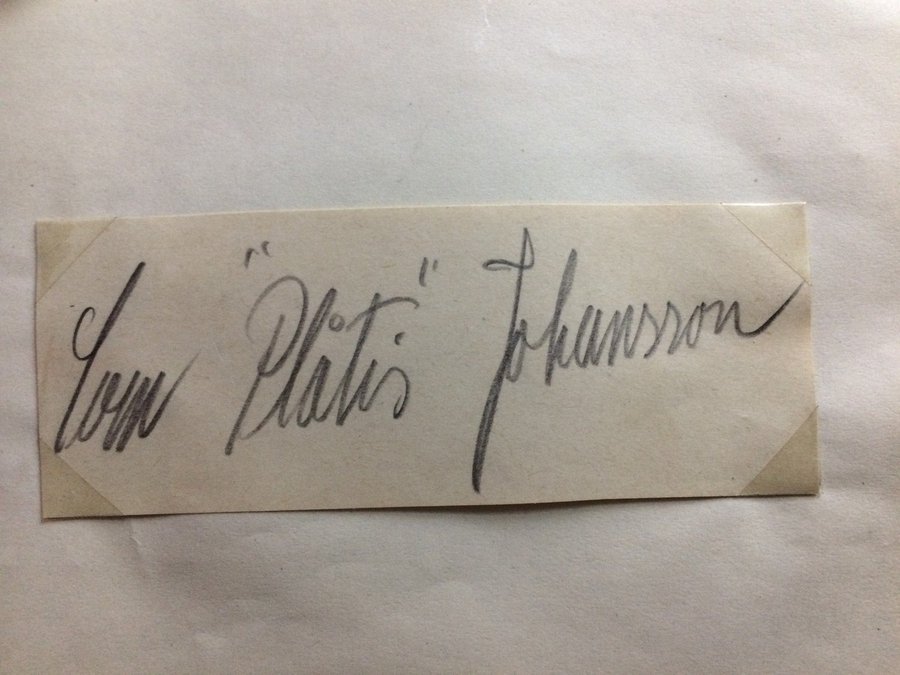 Tom "Plåtis" Johansson